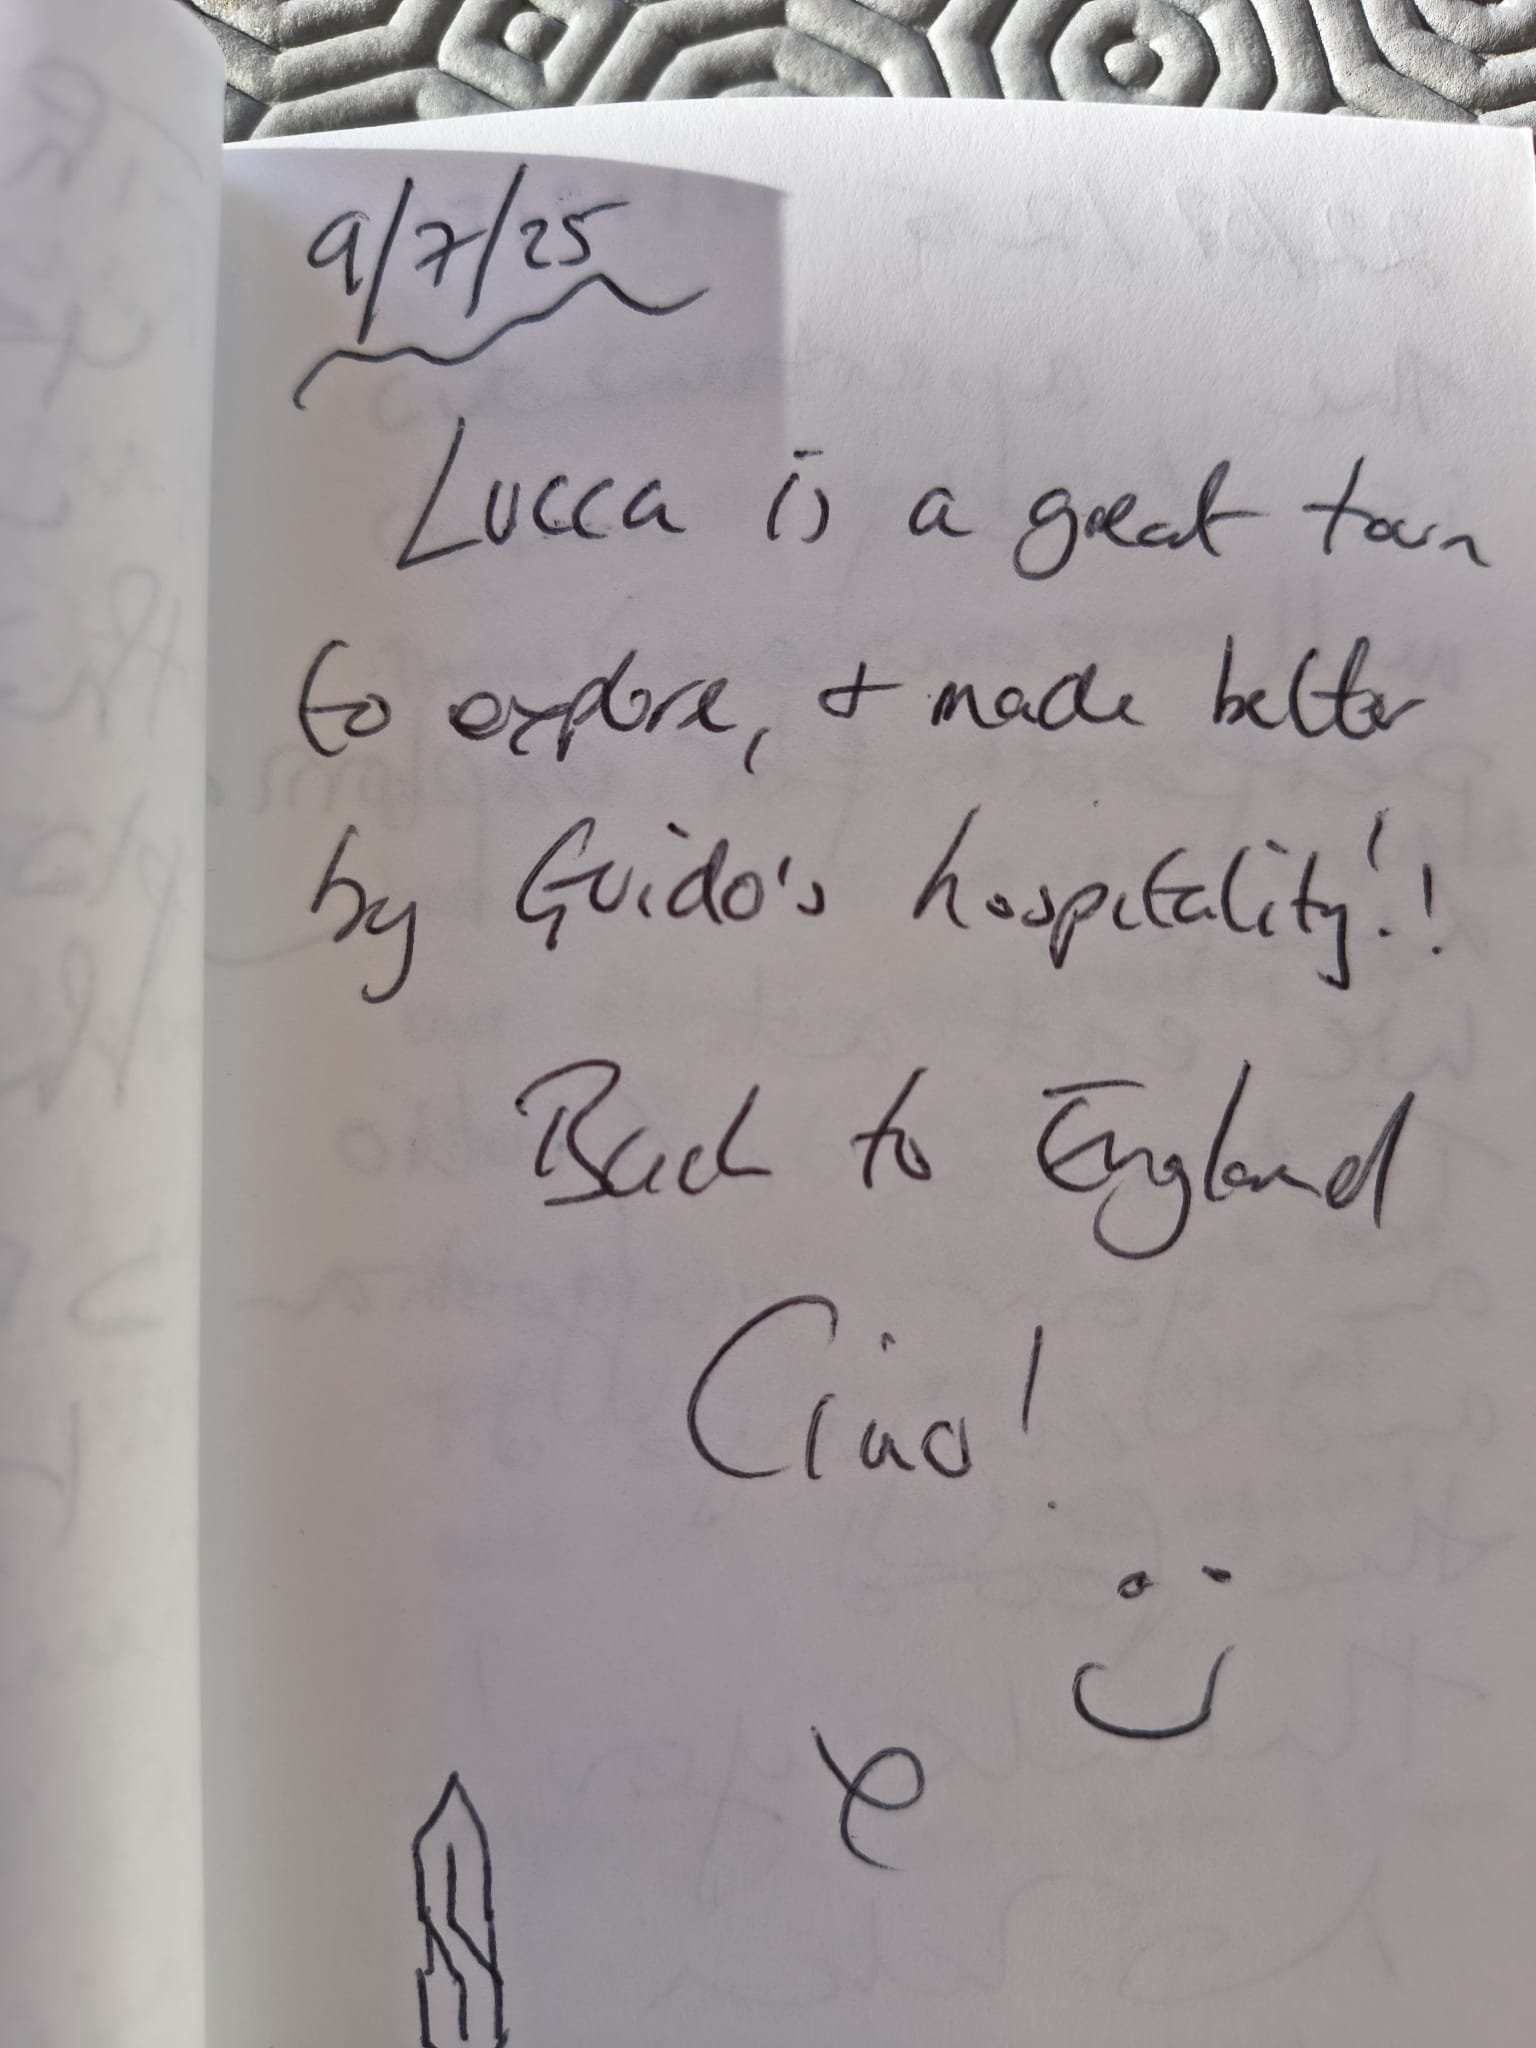 9/7/25
Lucca is a great town
to explore, + made better
by Guido's hospitality!!
Back to England
Ciao!